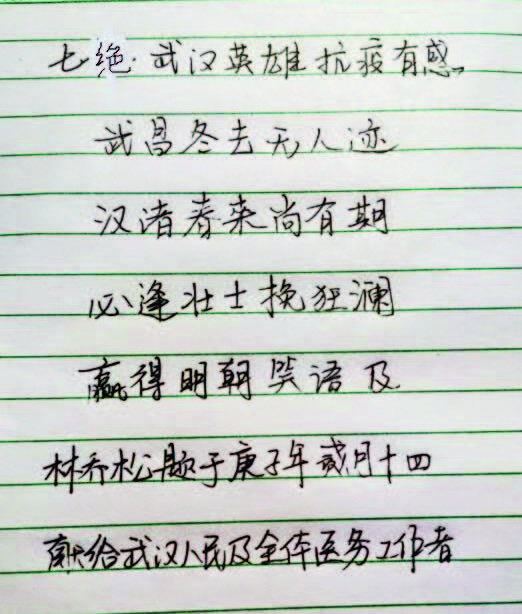 七绝·武汉英雄抗疫有感
武昌冬去无人迹
汉渚春来尚有期
必逢壮士挽狂澜
赢得明朝笑语及
林乔松题于庚子年贰月十四
献给武汉人民及全体医务工作者